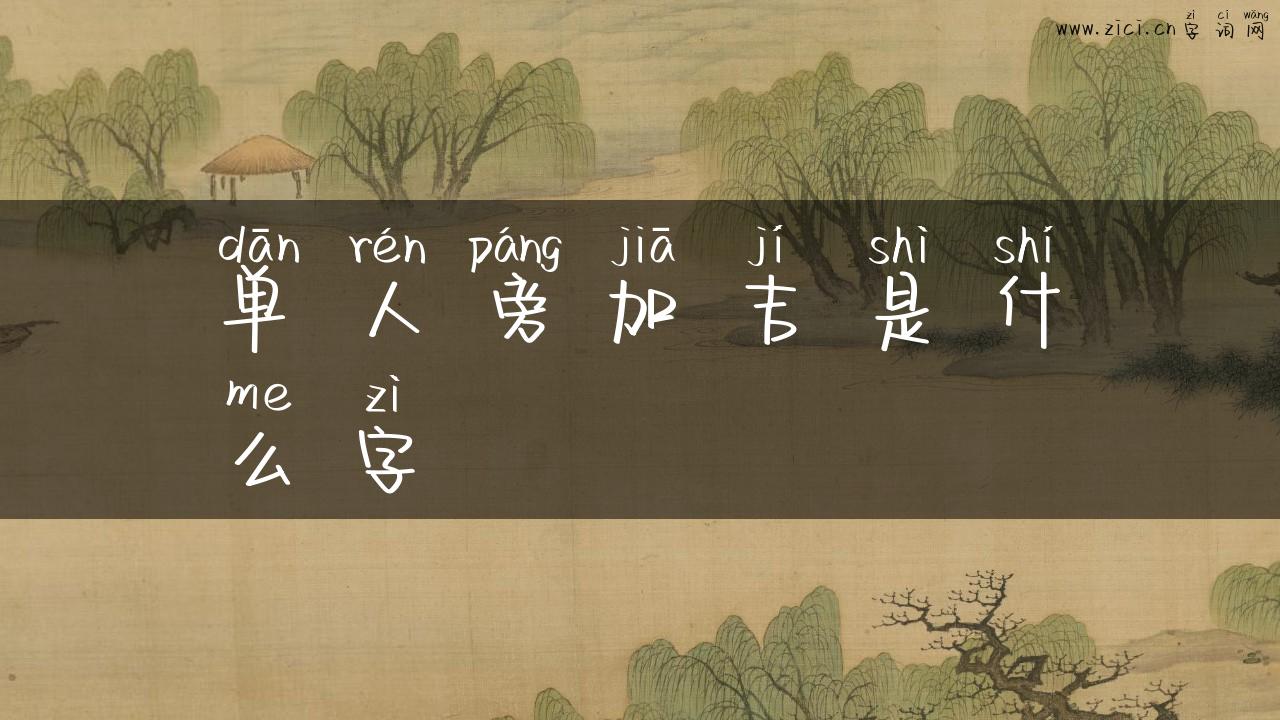 zì cí wǎng
www.zici.cn 字词网
dān rén páng jiā jí shì shí
单人旁加吉是什
me zì
么字